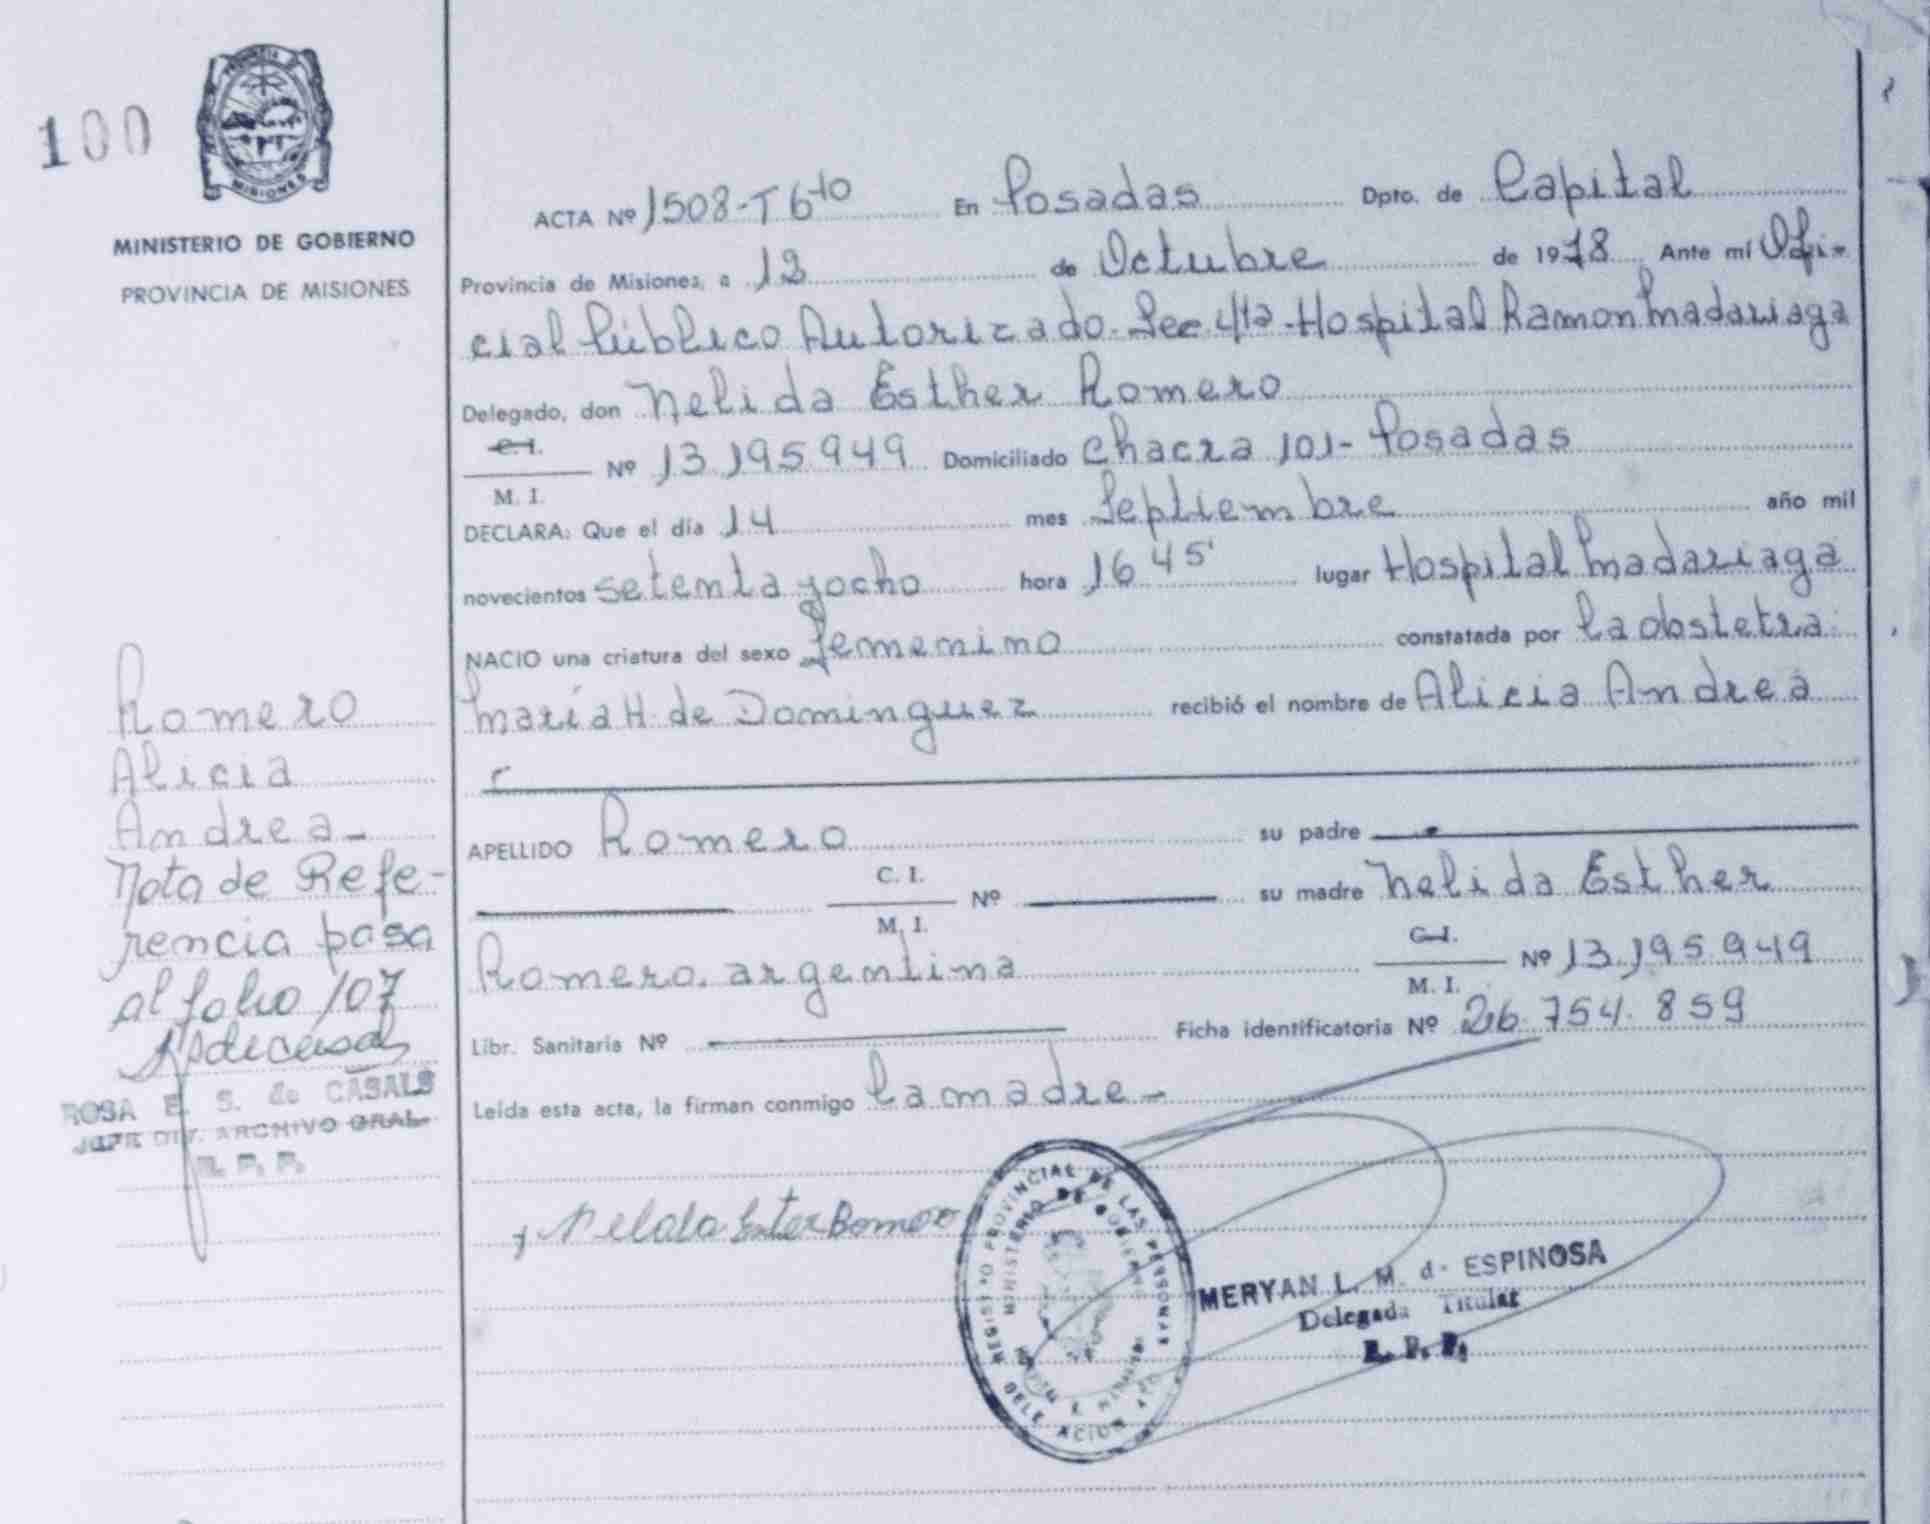 100
PROVINCIA DE
MISIONES
MINISTERIO DE GOBIERNO
PROVINCIA DE MISIONES
ACTA Nº 1508-T 6to En Posadas Dpto. de Capital
Provincia de Misiones, a 13 de Octubre de 1978 Ante mí Ofi-
cial Público Autorizado. Sec 4ta-Hospital Ramon Madariaga
Delegado, don Nelida Esther Romero
C.I.
Nº 13.195.949 Domiciliado Chacra 101- Posadas
M. I.
DECLARA: Que el día 14 mes Septiembre año mil
novecientos setenta y ocho hora 16 45' lugar Hospital Madariaga
NACIO una criatura del sexo femenino constatada por la obstetra:
María H. de Dominguez recibió el nombre de Alicia Andrea
APELLIDO Romero su padre
C. I.
Nº su madre Nelida Esther
M. I.
Romero. argentina C.I. Nº 13.195.949
M. I.
Libr. Sanitaria Nº Ficha identificatoria Nº 26.754.859
Leída esta acta, la firman conmigo la madre-
Romero
Alicia
Andrea-
Nota de Refe-
rencia pasa
al folio 107
ROSA E. S. de CASALS
JEFE DIV. ARCHIVO GRAL
R. P. P.
REGISTRO PROVINCIAL DE LAS PERSONAS
MINISTERIO DE GOBIERNO
MERYAN L. M. de ESPINOSA
Delegada Titular
R. P. P.